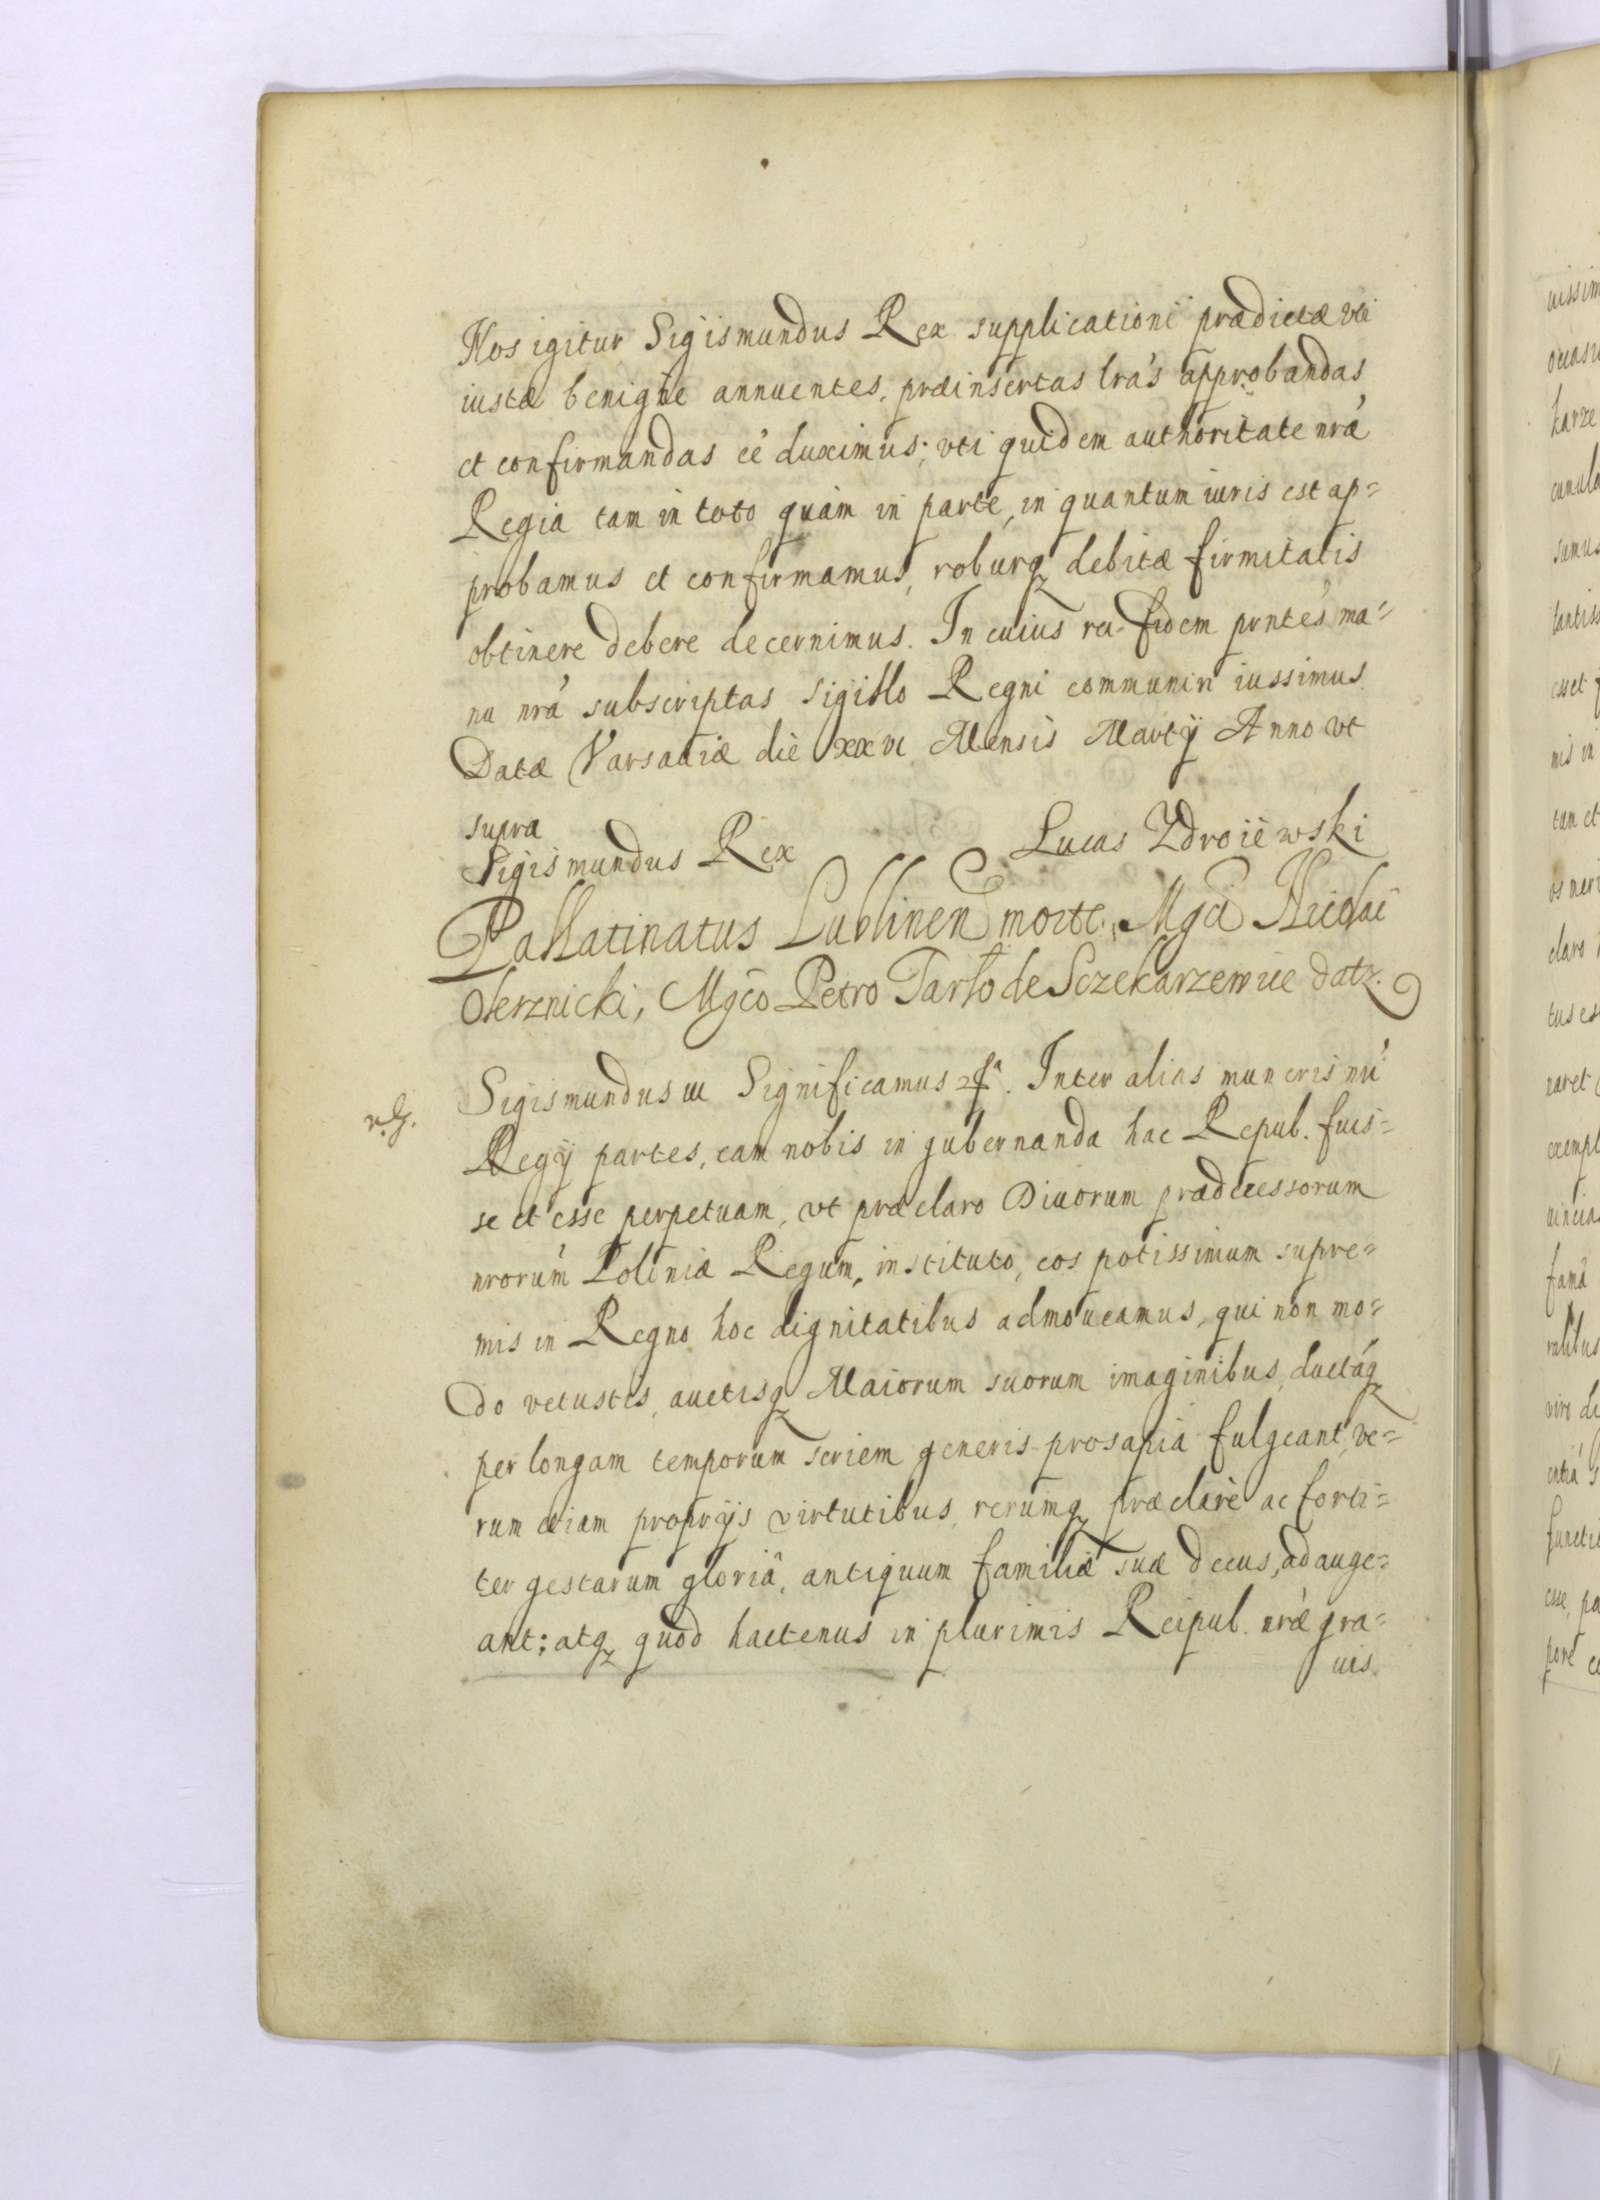 Nos igitur Sigismundus Rex supplicationi prædictæ uti
iustæ benigne annuentes, præinsertas lrás approbandas
et confirmandas eé duximus; uti quidem authoritate nrá
Regia tam in toto quàm in parte, in quantum iuris est ap=
probamus et confirmamus, roburq debitæ firmitatis
obtinere debere decernimus. In cuius rei fidem pnrtes ma=
nu nrá subscriptas sigillo Regni communiri iussimus.
Datæ Varsaviæ die XXVI Mensis Martij Anno vt
supra
Sigismundus Rex Lucas Zdroiewski
Pallatinatus Lublinen morte Mgci Nicolai
Oserznicki, Mgco Petro Tarło de Sczekarzewice datr.
Sigismundus III Significamus &a. Inter alias muneris nrí
Regij partes, eam nobis in gubernanda hac Repub. fuis=
se et esse perpetuam, vt præclaro Diuorum prædecessorum
nrorúm Poloniæ Regum, instituto, eos potissimum supre=
mis in Regno hoc dignitatibus admoueamus, qui non mo=
do vetustis, auctisq Maiorum suorum imaginibus, ductáq
per longam temporum seriem generis prosapia fulgeant, ve=
rum etiam proprijs virtutibus, rerumq præclarè ac forti=
ter gestarum gloriâ, antiquum familiæ suæ decus, adauge=
ant; atq quod hactenus in plurimis Reipul. nræ gra=
uis